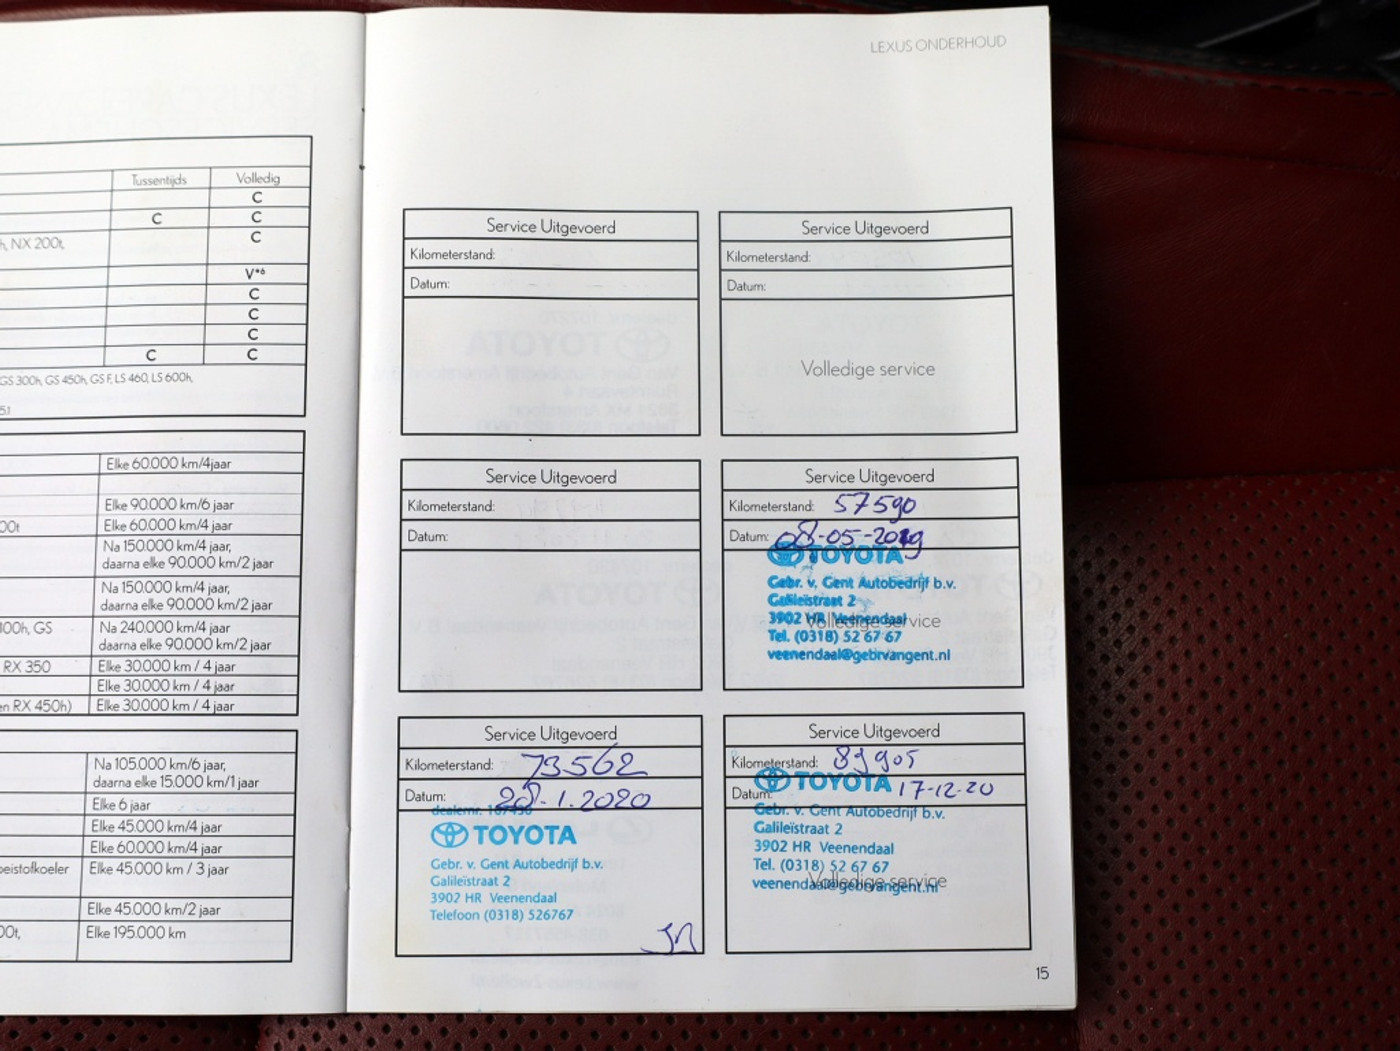 Tussentijds Volledig
C
C C
h, NX 200t, C
V*6
C
C
C
C C
GS 300h, GS 450h, GS F, LS 460, LS 600h,
Elke 60.000 km/4jaar
Elke 90.000 km/6 jaar
00t Elke 60.000 km/4 jaar
Na 150.000 km/4 jaar,
daarna elke 90.000 km/2 jaar
Na 150.000 km/4 jaar,
daarna elke 90.000 km/2 jaar
300h, GS Na 240.000 km/4 jaar
daarna elke 90.000 km/2 jaar
RX 350 Elke 30.000 km / 4 jaar
Elke 30.000 km / 4 jaar
en RX 450h) Elke 30.000 km / 4 jaar
Na 105.000 km/6 jaar,
daarna elke 15.000 km/1 jaar
Elke 6 jaar
Elke 45.000 km/4 jaar
Elke 60.000 km/4 jaar
eistofkoeler Elke 45.000 km / 3 jaar
Elke 45.000 km/2 jaar
00t, Elke 195.000 km
LEXUS ONDERHOUD
Service Uitgevoerd
Kilometerstand:
Datum:
Service Uitgevoerd
Kilometerstand:
Datum:
Volledige service
Service Uitgevoerd
Kilometerstand:
Datum:
Service Uitgevoerd
Kilometerstand: 57590
Datum: 08-05-2019
TOYOTA
Gebr. v. Gent Autobedrijf b.v.
Galileïstraat 2
3902 HR Veenendaal
Volledige service
Tel. (0318) 52 67 67
veenendaal@gebrvangent.nl
Service Uitgevoerd
Kilometerstand: 73562
Datum: 28.1.2020
dealernr. 107430
TOYOTA
Gebr. v. Gent Autobedrijf b.v.
Galileïstraat 2
3902 HR Veenendaal
Telefoon (0318) 526767
Service Uitgevoerd
Kilometerstand: 89905
Datum: 17-12-20
TOYOTA
Gebr. v. Gent Autobedrijf b.v.
Galileïstraat 2
3902 HR Veenendaal
Tel. (0318) 52 67 67
Volledige service
veenendaal@gebrvangent.nl
15